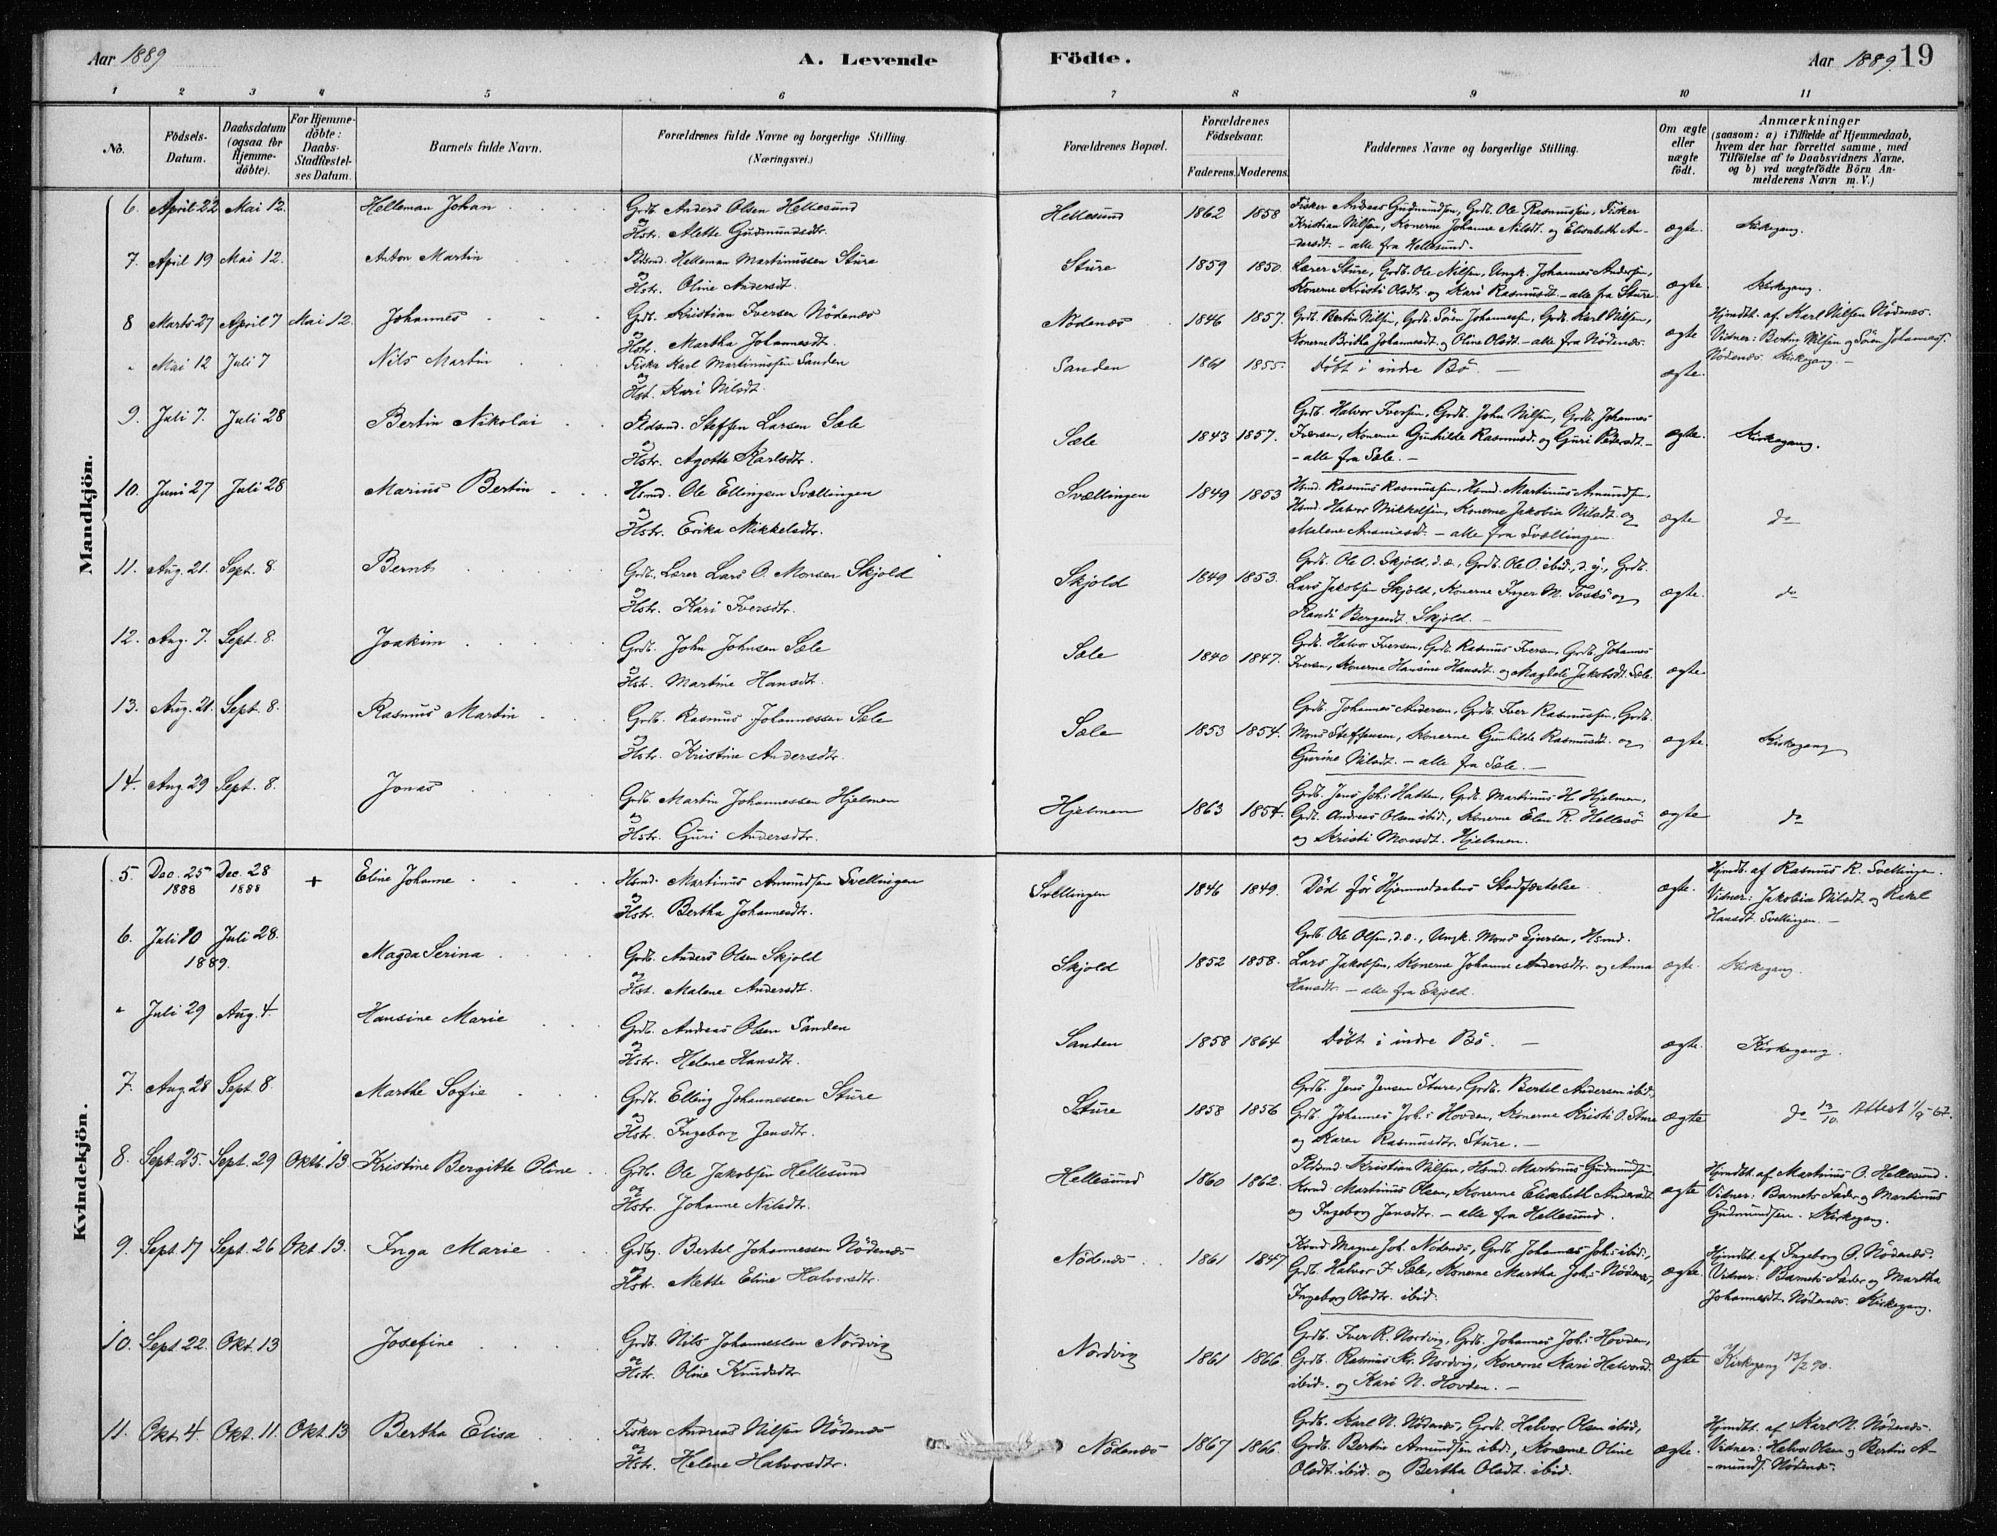 Aar 1889
A. Levende
Födte.
Aar 1889. 19
1 2 3 4 5 6 7 8 9 10 11
No.
Födsels-Datum.
Daabsdatum (ogsaa for Hjemme-döbte).
For Hjemme-döbte: Daabs-Stadfæstel-ses Datum.
Barnets fulde Navn.
Forældrenes fulde Navne og borgerlige Stilling.
(Næringsvei.)
Forældrenes Bopæl.
Forældrenes Födselsaar.
Faderens. Moderens.
Faddernes Navne og borgerlige Stilling.
Om ægte eller uægte födt.
Anmærkninger
(saasom: a) i Tilfælde af Hjemmedaab, hvem der har forrettet samme, med Tilföielse af to Daabsvidners Navne, og b) ved uægtefödte Börn An-melderens Navn m. V.)
Mandkjön.
6. April 22 Mai 12. Helleman Johan Grdb. Anders Olsen Hellesund
og Hstr. Alette Gudmundsdtr.
Hellesund 1862 1858 Fisker Andreas Gudmundsen, Grdb. Ole Rasmussen, Fisker
Kristian Nilsen, Konerne Johanne Nilsdt. og Elisabeth An-
dersdt. – alle fra Hellesund.
ægte. Kirkegang.
7. April 19 Mai 12. Anton Martin Pldsmd. Helleman Martinussen Sture
og Hstr. Oline Andersdt.
Sture 1859 1850. Lærer Sture, Grdb. Ole Nilsen, Ungk. Johannes Andersen,
Konerne Kristi Olsdt. og Kari Rasmusdt. – alle fra Sture.
ægte. Kirkegang.
8 Marts 27 April 7 Mai 12. Johannes Grdb. Kristian Iversen Nödenes
og Hstr. Martha Johannesdt.
Nödenes 1846 1857. Grdb. Bertin Nilsen, Grdb. Sören Johannessen, Grdb. Karl Nilsen,
Konerne Britha Johannesdt. og Oline Olsdt. – alle fra Nödenes.
ægte Hjmdbt. af Karl Nilsen Nödenes.
Vidner: Bertin Nilsen og Sören Johanness.
Nödenes. Kirkegang. –
" Mai 12 Juli 7 Nils Martin Fisker Karl Martinussen Sanden
og Hst. Kari Nilsdt.
Sanden 1861 1855. Döbt i indre Bö. –
ægte.
9. Juli 7. Juli 28 Bertin Nikolai Pldsmd. Steffen Larsen Sæle
og Hstr. Agotte Karlsdtr.
Sæle 1843 1857. Grdb. Halvor Iversen, Grdb. John Nilsen, Grdb. Johannes
Iversen, Konerne Gunhilde Rasmusd. og Guri Pedersdt.
– alle fra Sæle. –
ægte Kirkegang.
10. Juni 27 Juli 28 Marius Bertin Hsmd. Ole Ellingsen Svællingen
og Hstr. Erika Mikkelsdtr.
Svællingen 1849 1853 Hsmd. Rasmus Rasmussen, Hsmd. Martinus Amundsen,
Hsmd. Halvor Mikkelsen, Konerne Jakobia Nilsdt. og
Malene – alle fra Svællingen.
ægte do
11. Aug. 21. Sept. 8. Bernt Grdb. Lærer Lars O. Monsen Skjold
og Hstr. Kari Iversdtr.
Skjold 1849 1853. Grdb. Ole O. Skjold, d. æ., Grdb. Ole O. ibid., d. y., Grdb.
Lars Jakobsen Skjold, Konerne Inger M. og
Randi Skjold. –
ægte. do
12. Aug. 7. Sept. 8. Joakim Grdb. John Johnsen Sæle
og Hstr. Martine Hansdt.
Sæle 1840 1847. Grdb. Halvor Iversen, Grdb. Rasmus Iversen, Grdb. Johannes
Iversen, Konerne Hansine Hansdt. og Magdeli Jakobsdt. Sæle.
ægte
13. Aug. 21. Sept. 8. Rasmus Martin Grdb. Rasmus Johannessen Sæle
og Hstr. Kristine Andersdtr.
Sæle 1853 1854. Grdb. Johannes Andersen, Grdb. Iver Rasmussen, Grdb.
Mons Steffensen, Konerne Gunhilde Rasmusdt. og
Gurine Nilsdt. – alle fra Sæle. –
ægte. Kirkegang
14. Aug 29 Sept. 8. Jonas Grdb. Martin Johannessen Hjelmen
og Hstr. Guri Andersdtr.
Hjelmen 1863 1854. Grdb. Jens Joh.s Hatten, Grdb. Martinus H. Hjelmen,
Grdb. Andreas Olsen ibid., Konerne Elen R. Hellesö
og Kristi Monsdt. Hjelmen.
ægte do
Kvindekjön.
5. Dec. 25 1888 Dec. 28 1888 + Eline Johanne Hsmd. Martinus Amundsen Svellingen
og Hstr. Bertha Johannesdtr.
Svellingen 1846 1849. Död för Hjemmedaabens Stadfæstelse.
ægte. Hjmdbt. af Rasmus R. Svellingen.
Vidner: Jakobia Nilsdt og Rakel
Hansdt. Svellingen. –
6. Juli 10 Juli 28. 1889. Magda Serina Grdb. Anders Olsen Skjold
og Hst. Malene Andersdt.
Skjold 1852 1858. Grdb. Ole Olsen, d. æ., Ungk. Mons Hsmd.
Lars Jakobsen, Konerne Johanne Andersdtr. og Anna
Hansdtr. – alle fra Skjold.
ægte. Kirkegang.
" Juli 29 Aug. 4. Hansine Marie Grdb. Andreas Olsen Sanden
og Hstr. Helene Hansdt.
Sanden 1858 1864 Döbt i indre Bö. –
ægte. Kirkegang.
7. Aug 28 Sept 8. Marthe Sofie Grdb. Elling Johannessen Sture
og Hstr. Ingeborg Jensdtr.
Sture 1858 1856 Grdb. Jens Jensen Sture, Grdb. Bertel Andersen ibid.,
Grdb. Johannes Joh.s Hovden, Konerne Kristi O. Sture
og Karen Rasmusdtr. Sture. –
ægte do 13/10. Attest 1/9-67.
8. Sept. 25. Sept. 29 Oktb. 13 Kristine Bergitte Oline Grdb. Ole Jakobsen Hellesund
og Hstr. Johanne Nilsdtr.
Hellesund 1860 1862. Pldsmd Kristian Nilsen, Hsmd. Martinus Gudmundsen,
Martinus Olsen, Konerne Elisabeth Andersdt
og Ingeborg Jensdtr. – alle fra Hellesund.
ægte Hjmdbt. af Martinus O. Hellesund.
Vidner: Barnets Fader og Martinus
Gudmundsen. Kirkegang.
9. Sept. 17 Sept. 26 Okt. 13. Inga Marie Grdbg. Bertel Johannessen Nödenes
og Hstr. Mette Eline Halvorsdtr.
Nödenes 1861 1847 Magne Joh. Nödenes, Grdb. Johannes Joh.s ibid.,
Grdb. Halvor I. Sæle, Konerne Martha Joh.s Nödenes,
Ingeborg Olsdtr. ibid.
ægte. Hjmdbt. af Ingeborg O. Nödenes.
Vidner: Barnets Fader og Martha
Johannesdt. Nödenes. Kirkegang.
10. Sept 22. Okt. 13 Josefine Grdb. Nils Johannessen Nordvig
og Hstr. Oline Knudsdtr
Nordvig 1861 1866. Grdb. Iver R. Nordvig, Grdb. Johannes Joh.s Hovden,
Grdb. Rasmus Kr. Nordvig, Konerne Kari Halvorsd.
ibid. og Kari N. Hovden. –
ægte Kirkegang 13/2 90.
11. Okt. 4. Okt. 11. Okt. 13 Bertha Elisa Fisker Andreas Nilsen Nödenes
og Hstr. Helene Halvorsdtr.
Nödenes 1867 1866. Grdb. Karl N. Nödenes, Grdb. Halvor Olsen ibid,
Grdb. Bertin Amundsen ibid., Konerne Oline
Olsdt. ibid. og Bertha Olsdt. ibid.
ægte. Hjmdbt. af Karl N. Nödenes.
Vidner: Halvor Olsen og Bertin A-
munds. Nödenes.